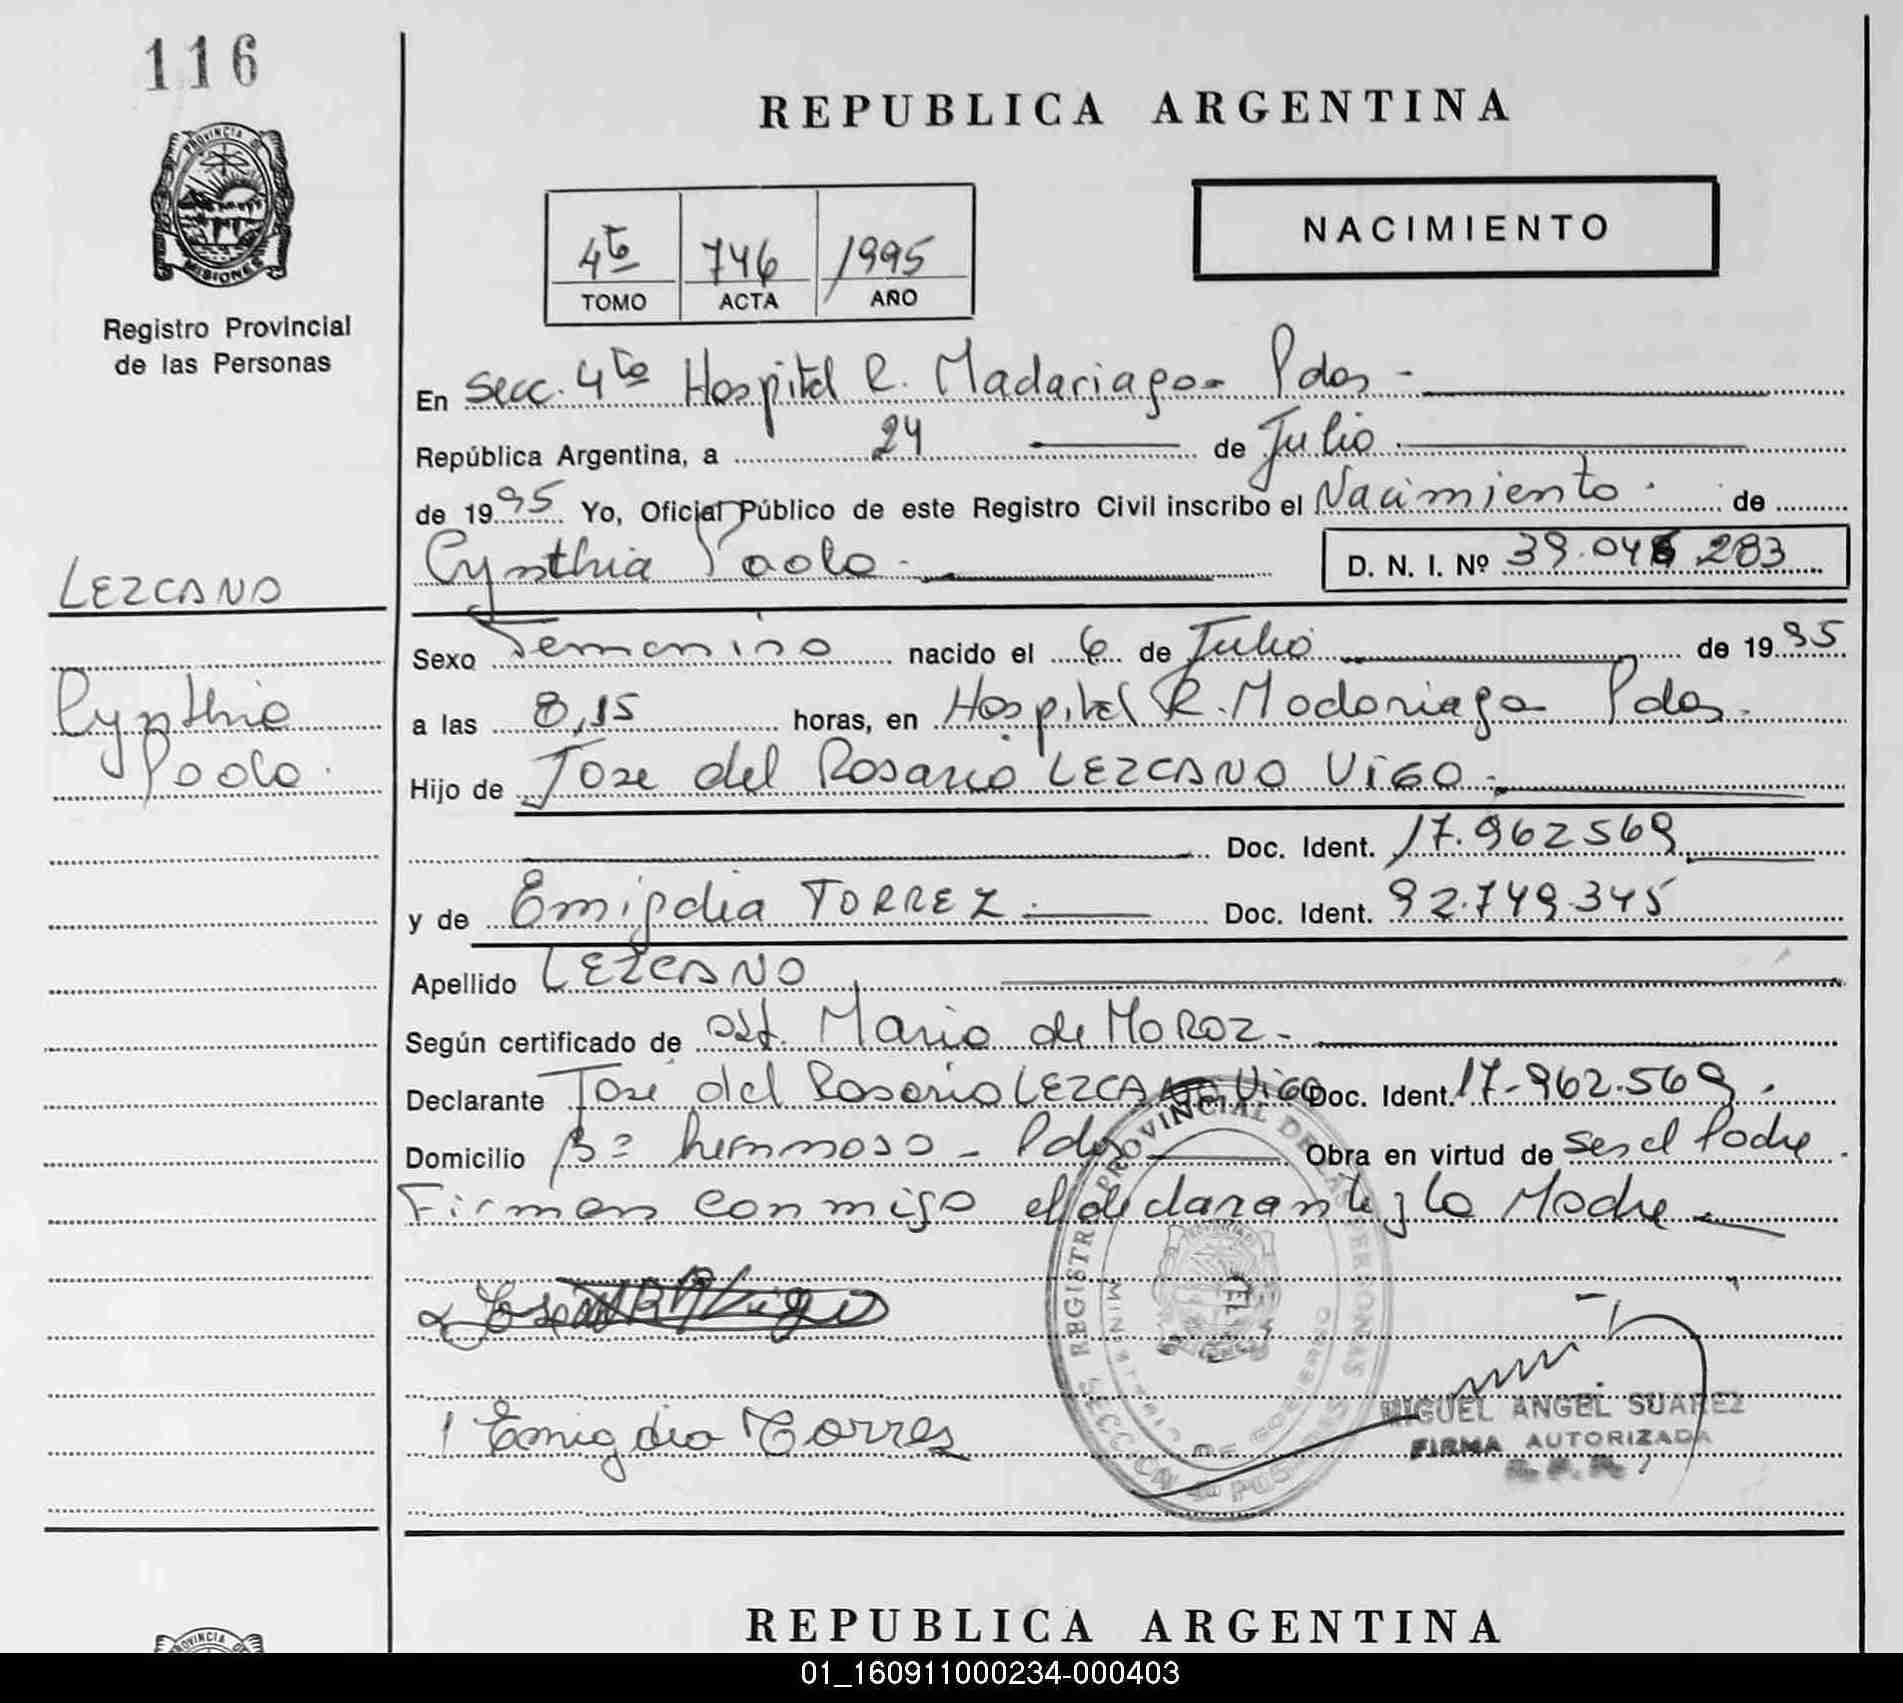 116
REPUBLICA ARGENTINA
PROVINCIA DE
MISIONES
Registro Provincial
de las Personas
4to 746 1995
TOMO ACTA AÑO
NACIMIENTO
En Secc. 4to Hospital R. Madariaga - Pdas -
República Argentina, a 24 de Julio
de 1995 Yo, Oficial Público de este Registro Civil inscribo el Nacimiento de
Cynthia Paola D. N. I. Nº 39.04 283
LEZCANO
Cynthia
Paola
Sexo Femenino nacido el 6 de Julio de 1995
a las 8,15 horas, en Hospital R. Madariaga Pdas.
Hijo de Jose del Rosario LEZCANO VIGO
Doc. Ident. 17.962569
y de Emigdia TORREZ Doc. Ident. 92.749.345
Apellido LEZCANO
Según certificado de Obst. Maria de MOROZ
Declarante José del Rosario LEZCANO VIGO Doc. Ident. 17.962.569
Domicilio Bº hermoso - Pdas Obra en virtud de ser el Padre
Firman conmigo el declarante y la Madre
REGISTRO PROVINCIAL DE LAS PERSONAS
MINISTERIO DE GOBIERNO
Emigdia Torres
MIGUEL ANGEL SUAREZ
FIRMA AUTORIZADA
PROVINCIA DE
REPUBLICA ARGENTINA
01_160911000234-000403